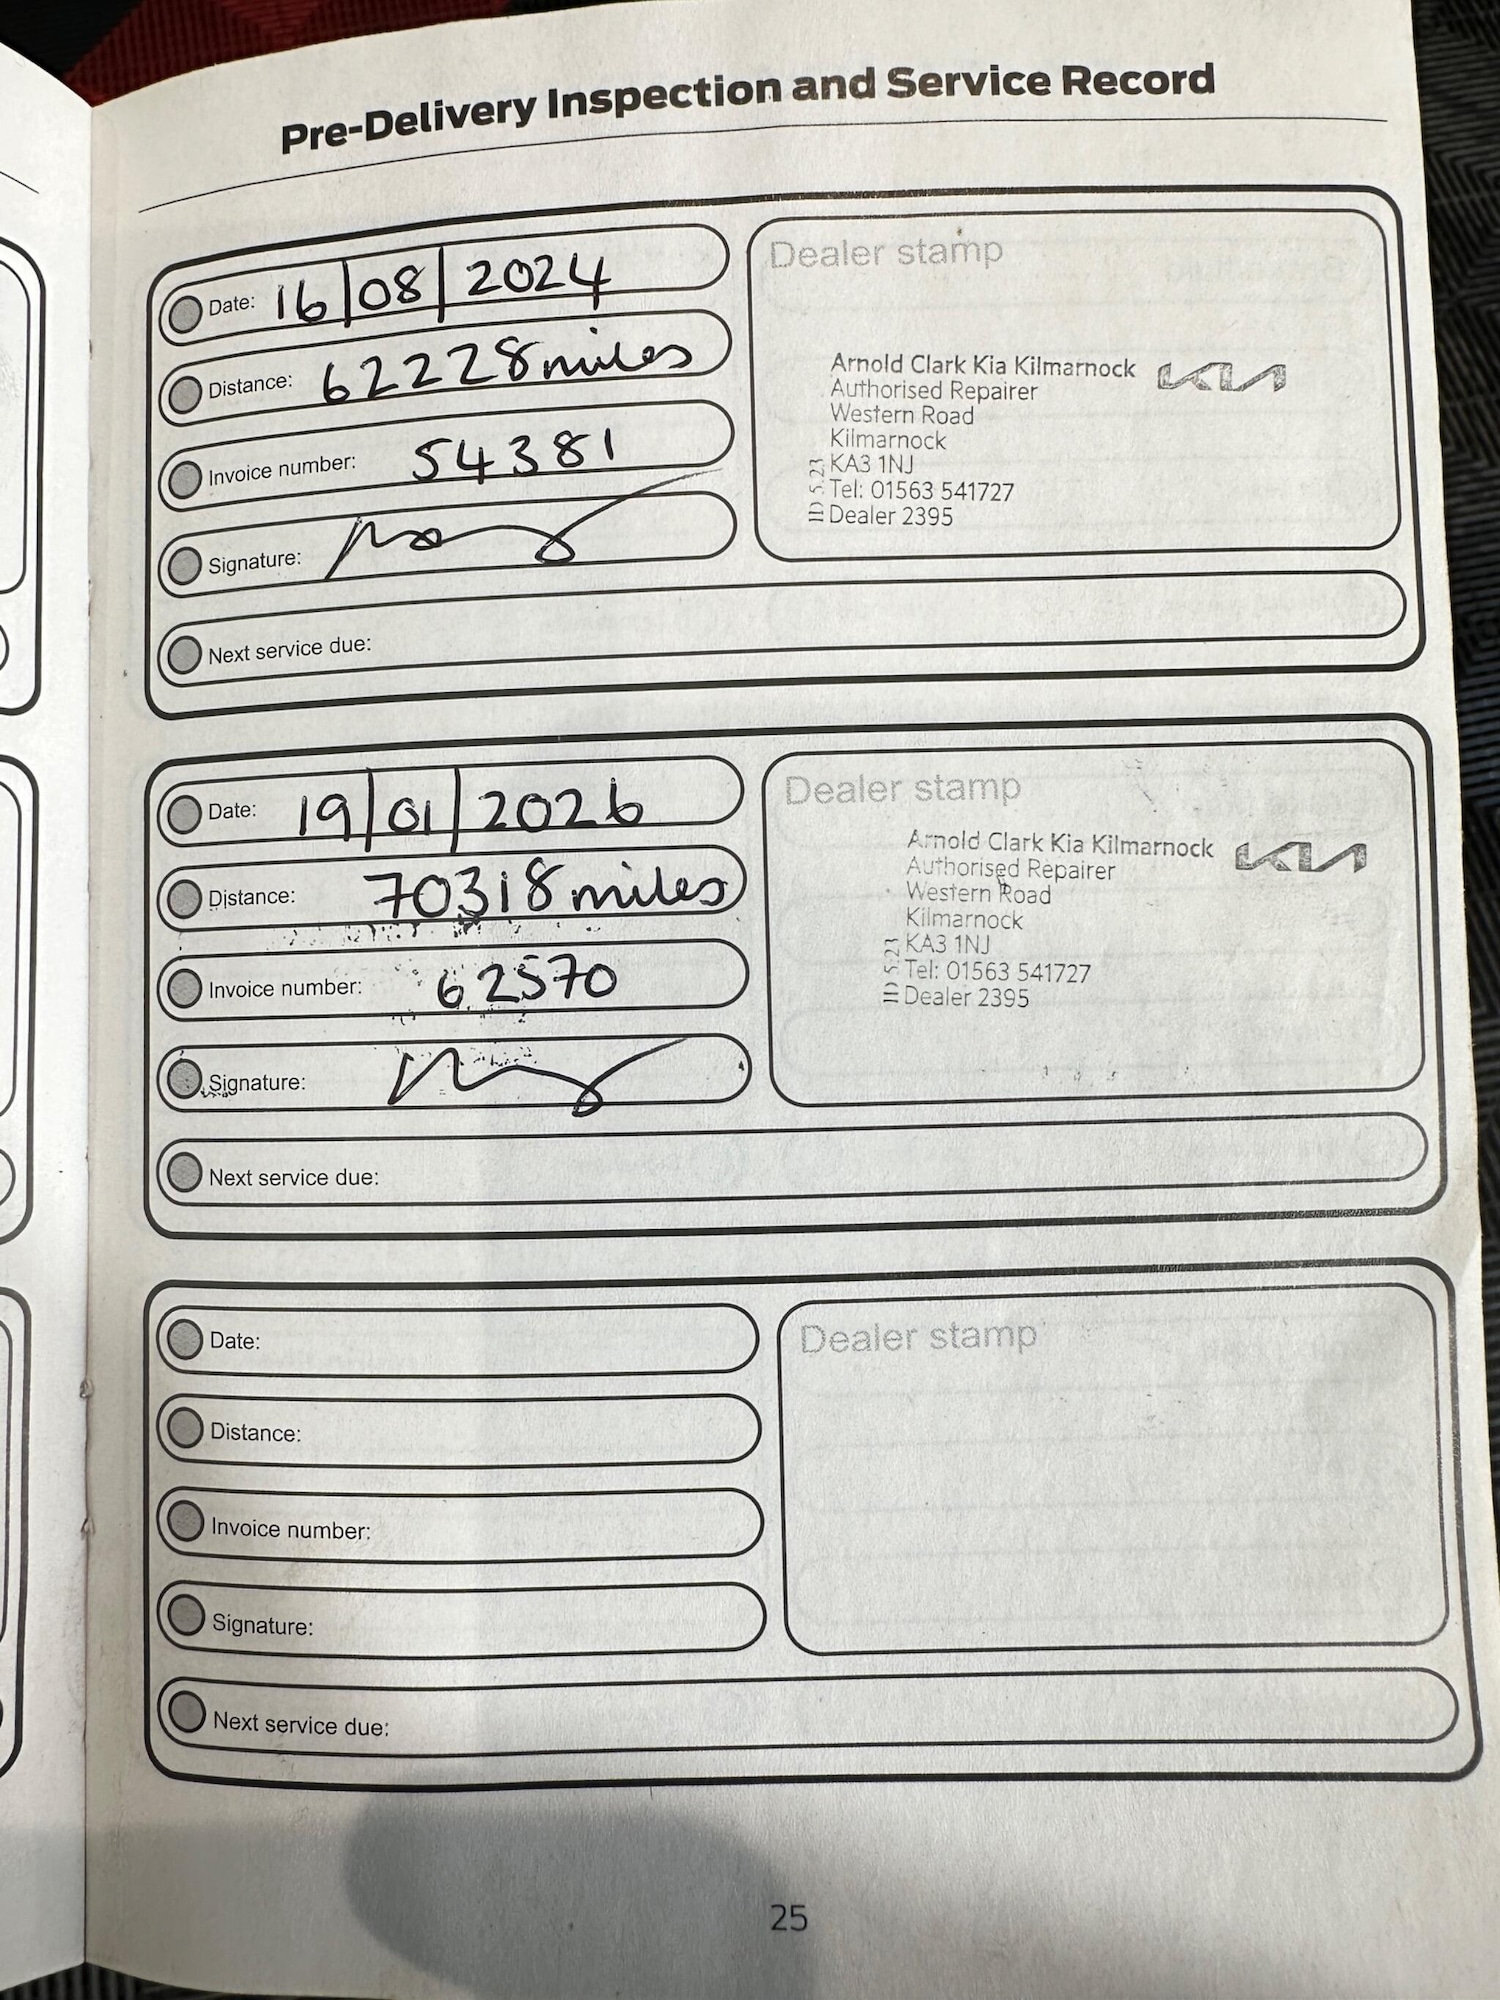 Pre-Delivery Inspection and Service Record
Date: 16/08/2024
Distance: 62228 miles
Invoice number: 54381
Signature:
Next service due:
Dealer stamp
Arnold Clark Kia Kilmarnock KIA
Authorised Repairer
Western Road
Kilmarnock
KA3 1NJ
Tel: 01563 541727
Dealer 2395
ID 5.23
Date: 19/01/2026
Distance: 70318 miles
Invoice number: 62570
Signature:
Next service due:
Dealer stamp
Arnold Clark Kia Kilmarnock KIA
Authorised Repairer
Western Road
Kilmarnock
KA3 1NJ
Tel: 01563 541727
Dealer 2395
ID 5.23
Date:
Distance:
Invoice number:
Signature:
Next service due:
Dealer stamp
25